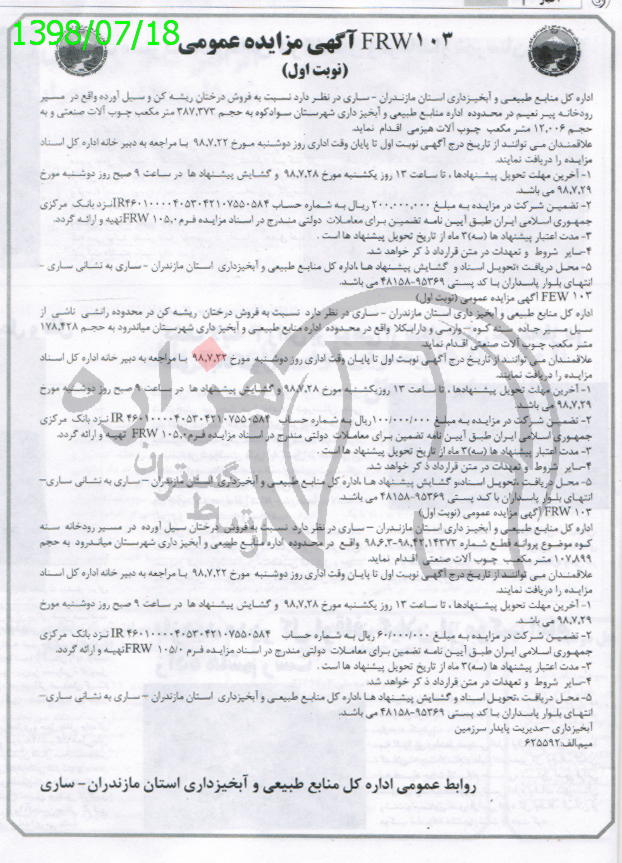 1398/07/18
FRW۱۰۳ آگهی مزایده عمومی
(نوبت اول)
اداره کل منابع طبیعی و آبخیزداری استان مازندران – ساری در نظر دارد نسبت به فروش درختان ریشه کن و سیل آورده واقع در مسیر
رودخانه پیر نعیم در محدوده اداره منابع طبیعی و آبخیز داری شهرستان سوادکوه به حجم ۳۸۷,۳۷۳ متر مکعب چوب آلات صنعتی و به
حجم ۱۲,۰۰۶ متر مکعب چوب آلات هیزمی اقدام نماید.
علاقمندان می توانند از تاریخ درج آگهی نوبت اول تا پایان وقت اداری روز دوشنبه مورخ ۹۸,۷,۲۲ با مراجعه به دبیر خانه اداره کل اسناد
مزایده را دریافت نمایند.
۱– آخرین مهلت تحویل پیشنهادها ، تا ساعت ۱۳ روز یکشنبه مورخ ۹۸,۷,۲۸ و گشایش پیشنهاد ها در ساعت ۹ صبح روز دوشنبه مورخ
۹۸,۷,۲۹ می باشد.
۲– تضمین شرکت در مزایده به مبلغ ۲۰۰,۰۰۰,۰۰۰ ریال به شماره حساب IR۴۶۰۱۰۰۰۰۴۰۵۳۰۴۲۱۰۷۵۵۰۵۸۴نزد بانک مرکزی
جمهوری اسلامی ایران طبق آیین نامه تضمین برای معاملات دولتی مندرج در اسناد مزایده فرم FRW ۱۰۵,۰تهیه و ارائه گردد.
۳– مدت اعتبار پیشنهاد ها (سه)۳ ماه از تاریخ تحویل پیشنهاد ها است .
۴–سایر شروط و تعهدات در متن قرارداد ذکر خواهد شد.
۵– محل دریافت ،تحویل اسناد و گشایش پیشنهاد ها ،اداره کل منابع طبیعی و آبخیزداری استان مازندران – ساری به نشانی ساری –
انتهای بلوار پاسداران با کد پستی ۹۵۳۶۹–۴۸۱۵۸ می باشد.
FEW ۱۰۳ آگهی مزایده عمومی (نوبت اول)
اداره کل منابع طبیعی و آبخیز داری استان مازندران – ساری در نظر دارد نسبت به فروش درختان ریشه کن در محدوده رانشی ناشی از
سیل مسیر جاده سنه کوه – وارمی و دارابکلا واقع در محدوده اداره منابع طبیعی و آبخیز داری شهرستان میاندرود به حجم ۱۷۸,۴۲۸
متر مکعب چوب آلات صنعتی اقدام نماید.
علاقمندان می توانند از تاریخ درج آگهی نوبت اول تا پایان وقت اداری روز دوشنبه مورخ ۹۸,۷,۲۲ با مراجعه به دبیر خانه اداره کل اسناد
مزایده را دریافت نمایند.
۱– آخرین مهلت تحویل پیشنهادها ، تا ساعت ۱۳ روزیکشنبه مورخ ۹۸,۷,۲۸ و گشایش پیشنهاد ها در ساعت ۹ صبح روز دوشنبه مورخ
۹۸,۷,۲۹ می باشد.
۲– تضمین شرکت در مزایده به مبلغ ۱۰۰/۰۰۰/۰۰۰ریال به شماره حساب IR ۴۶۰۱۰۰۰۰۴۰۵۳۰۴۲۱۰۷۵۵۰۵۸۴ نزد بانک مرکزی
جمهوری اسلامی ایران طبق آیین نامه تضمین برای معاملات دولتی مندرج در اسناد مزایده فرم FRW ۱۰۵,۰ تهیه و ارائه گردد.
۳– مدت اعتبار پیشنهاد ها (سه)۳ ماه از تاریخ تحویل پیشنهاد ها است .
۴–سایر شروط و تعهدات در متن قرارداد ذکر خواهد شد.
۵– محل دریافت ،تحویل اسنادو گشایش پیشنهاد ها ،اداره کل منابع طبیعی و آبخیزداری استان مازندران – ساری به نشانی ساری–
انتهای بلوار پاسداران با کد پستی ۹۵۳۶۹–۴۸۱۵۸ می باشد.
FRW ۱۰۳ آگهی مزایده عمومی (نوبت اول)
اداره کل منابع طبیعی و آبخیز داری استان مازندران – ساری در نظر دارد نسبت به فروش درختان سیل آورده در مسیر رودخانه سنه
کوه موضوع پروانه قطع شماره ۹۸,۴۲,۱۴۳۷۳–۹۸,۶,۳ واقع در محدوده اداره منابع طبیعی و آبخیز داری شهرستان میاندرود به حجم
۱۰۷,۸۹۹ متر مکعب چوب آلات صنعتی اقدام نماید.
علاقمندان می توانند از تاریخ درج آگهی نوبت اول تا پایان وقت اداری روز دوشنبه مورخ ۹۸,۷,۲۲ با مراجعه به دبیر خانه اداره کل اسناد
مزایده را دریافت نمایند.
۱– آخرین مهلت تحویل پیشنهادها ، تا ساعت ۱۳ روز یکشنبه مورخ ۹۸,۷,۲۸ و گشایش پیشنهاد ها در ساعت ۹ صبح روز دوشنبه مورخ
۹۸,۷,۲۹ می باشد.
۲– تضمین شرکت در مزایده به مبلغ ۶۰/۰۰۰/۰۰۰ ریال به شماره حساب IR ۴۶۰۱۰۰۰۰۴۰۵۳۰۴۲۱۰۷۵۵۰۵۸۴ نزد بانک مرکزی
جمهوری اسلامی ایران طبق آیین نامه تضمین برای معاملات دولتی مندرج در اسناد مزایده فرم FRW ۱۰۵/۰تهیه و ارائه گردد.
۳– مدت اعتبار پیشنهاد ها (سه)۳ ماه از تاریخ تحویل پیشنهاد ها است .
۴–سایر شروط و تعهدات در متن قرارداد ذکر خواهد شد.
۵– محل دریافت ،تحویل اسناد و گشایش پیشنهاد ها ،اداره کل منابع طبیعی و آبخیزداری استان مازندران – ساری به نشانی ساری–
انتهای بلوار پاسداران با کد پستی ۹۵۳۶۹–۴۸۱۵۸ می باشد.
آبخیزداری –مدیریت پایدار سرزمین
میم‌الف:۶۲۵۵۹۲
روابط عمومی اداره کل منابع طبیعی و آبخیزداری استان مازندران– ساری